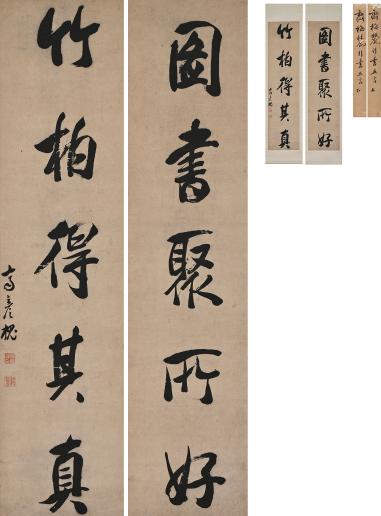 圖書聚所好
竹柏得其真
齊彥槐
圖書聚所好
竹柏得其真
齊彥槐